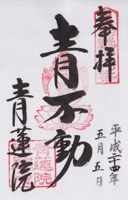 奉拝
平成二十四年
五月五日
青不動
青蓮院